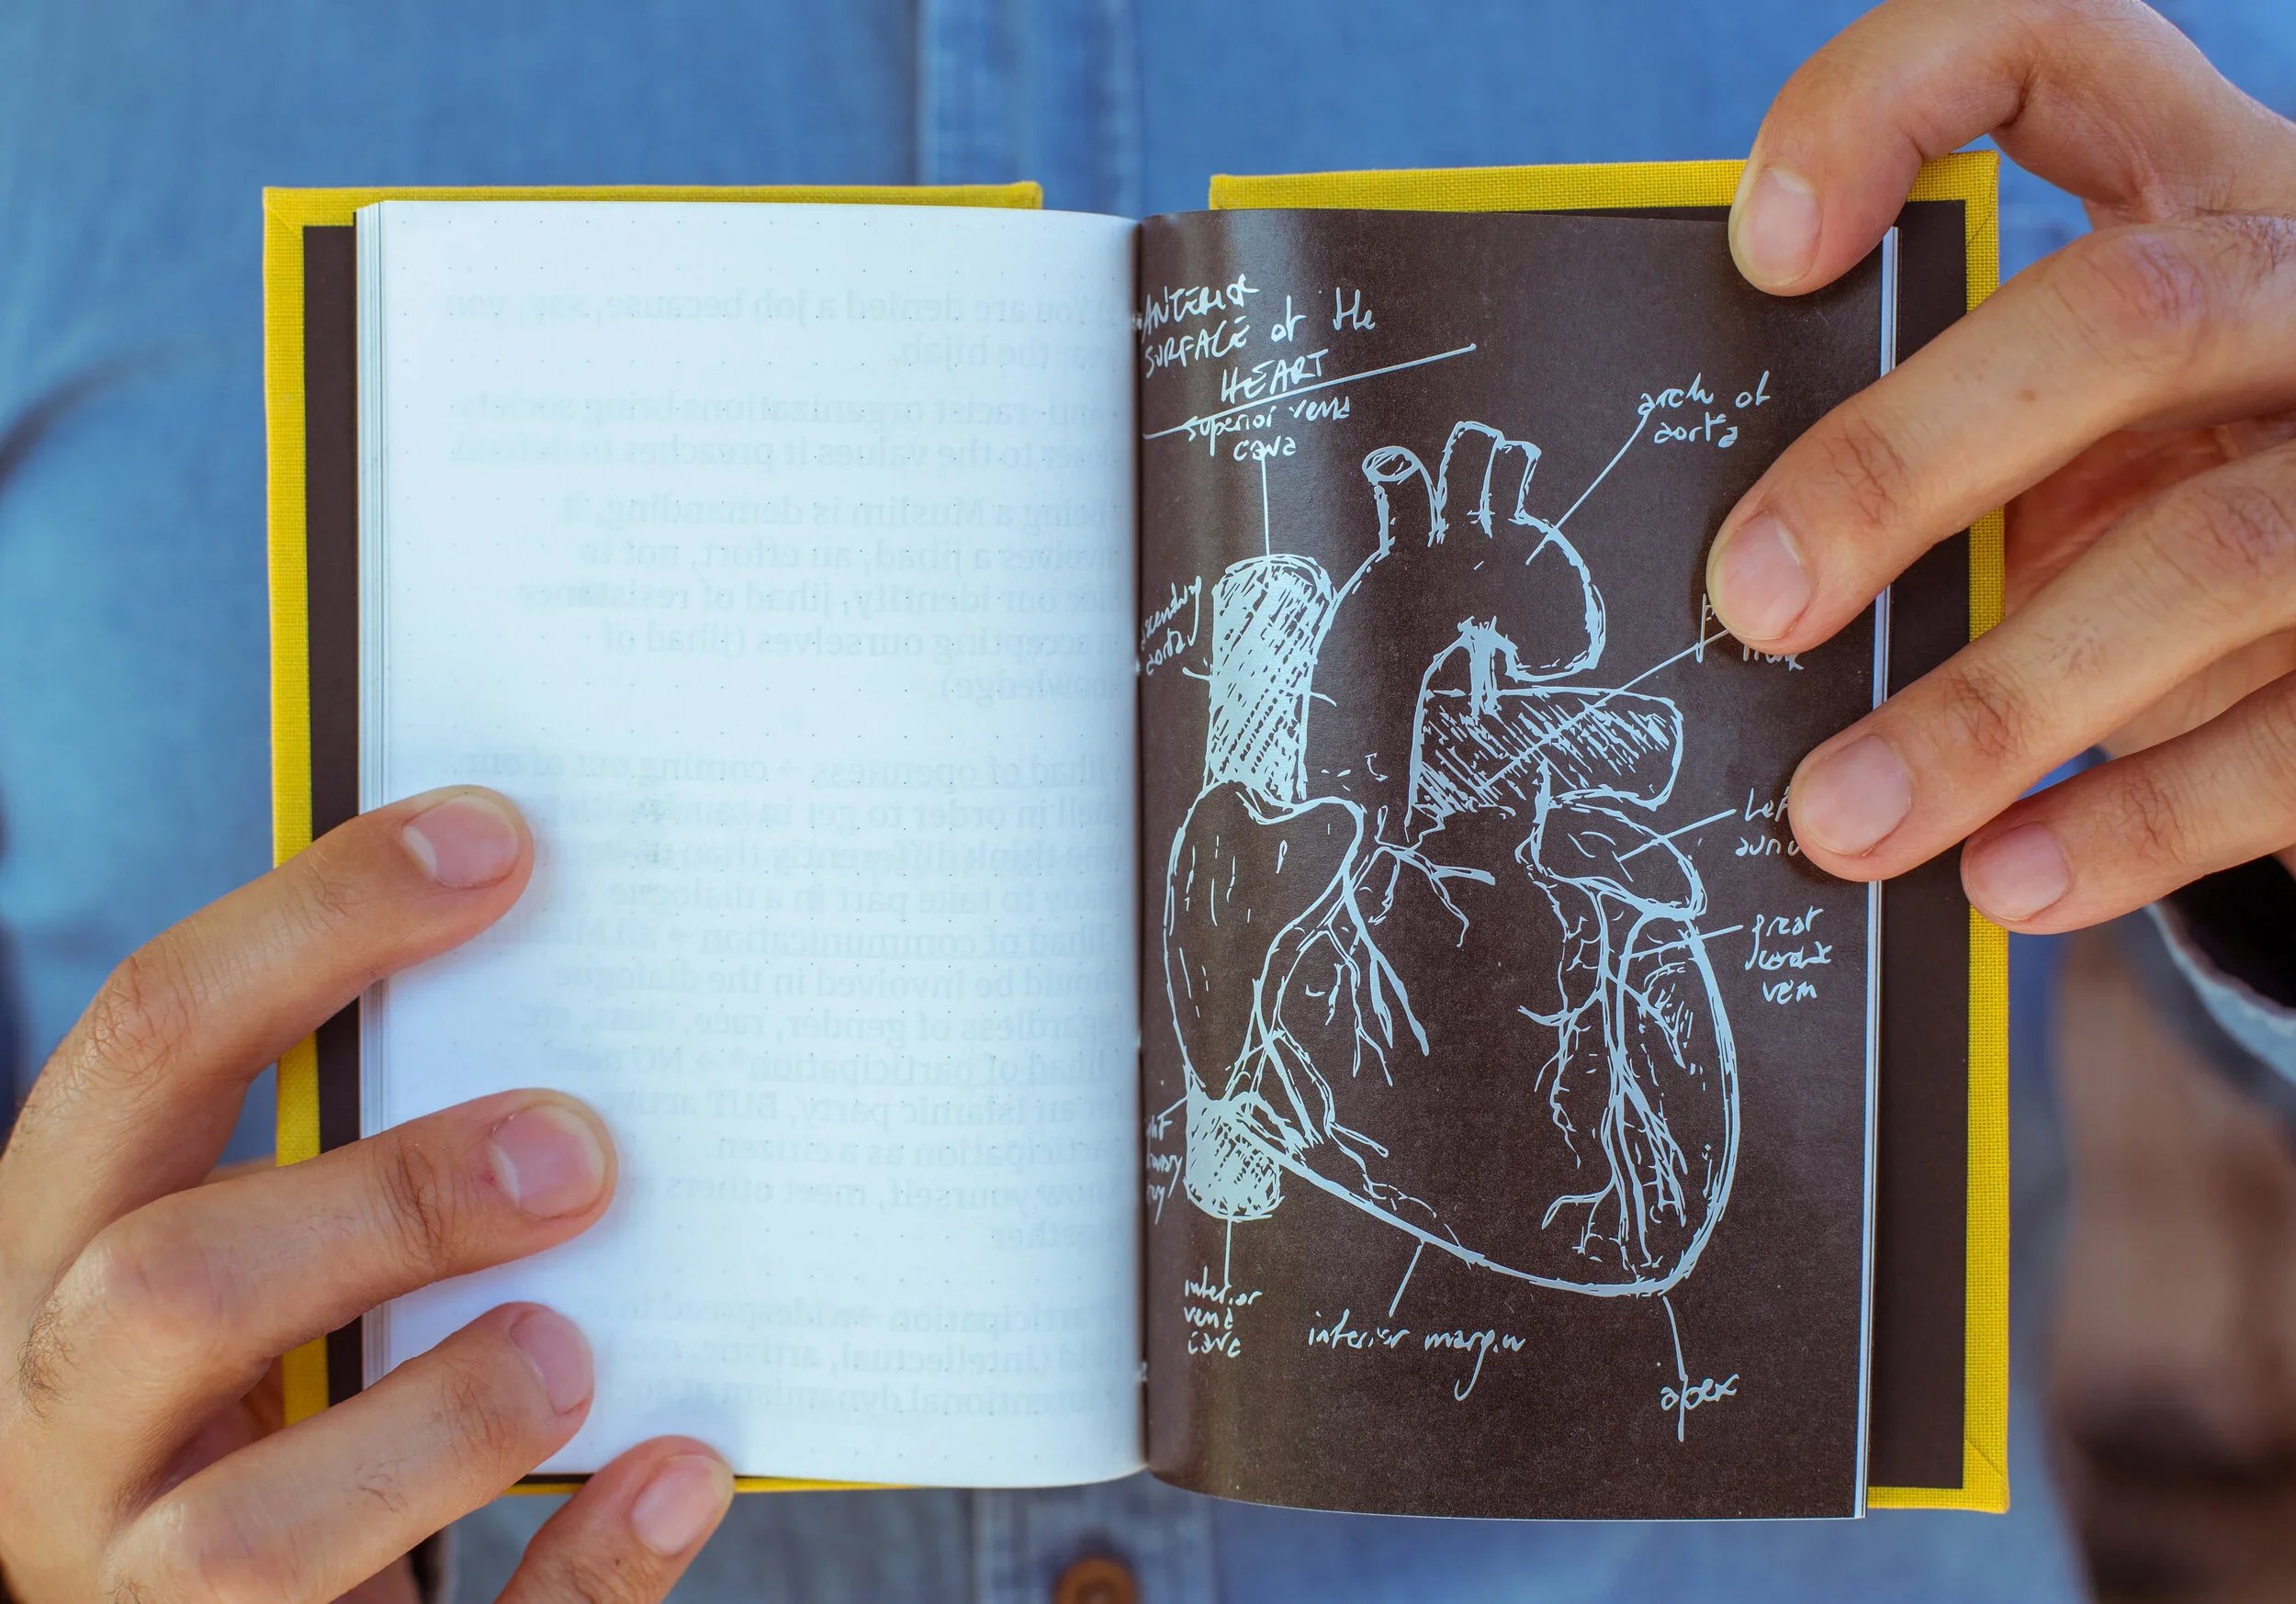 You are denied a job because, say, you
the hijab.
anti-racist organizations being society
to the values it preaches to defend
Being a Muslim is demanding, it
involves a jihad, an effort, not to
our identity, jihad of resistance
accepting ourselves (jihad of
knowledge).
Jihad of openness → coming out of our
shell in order to get in touch with
think differently than
ready to take part in a dialogue
Jihad of communication → all Muslims
should be involved in the dialogue
regardless of gender, race, class, etc
Jihad of participation* → NO need
for an Islamic party, BUT
participation as a citizen.
Know yourself, meet others
together
Participation → widespread
(intellectual, artistic, etc.
dynamism
ANTERIOR
SURFACE of the
HEART
superior vena
cava
arch of
aorta
ascending
aorta
great
cardiac
vein
inferior
vena
cava
inferior margin
apex